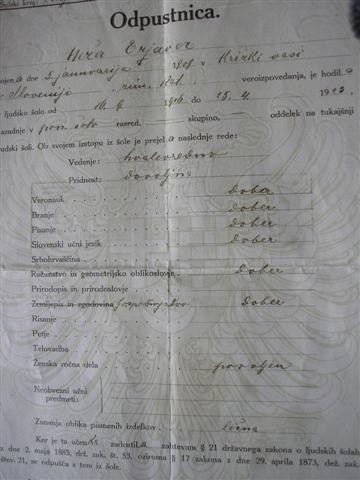 Šolski kraj:
Odpustnica.
Erjavec
ojen a dne 5. januvarija v Krški vasi
Slovenije rim. kat. veroizpovedanja, je hodil a
ljudsko šolo od 16. 9. 1916 do 15. 4. 1923.
azadnje v razred, skupino, — oddelek na tukajšnji
udski šoli. Ob svojem izstopu iz šole je prejel a naslednje rede:
Vedenje: hvalevredno
Pridnost: dovoljna
Veronauk dober
Branje dober
Pisanje dober
Slovenski učni jezik dober
Srbohrvaščina
Računstvo in geometrijsko oblikoslovje dober
Prirodopis in prirodoslovje
Zemljepis in zgodovina gospodinjstvo dober
Risanje
Petje
Telovadba
Ženska ročna dela povoljen
Neobvezni učni
predmeti:
Zunanja oblika pismenih izdelkov lična
Ker je ta učen ka zadostila zahtevam § 21 državnega zakona o ljudskih šolah
z dne 2. maja 1883, drž. zak. št. 53, oziroma § 17 zakona z dne 29. aprila 1873, dež. zak.
štev. 21, se odpušča s tem iz šole.